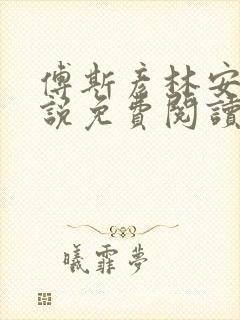 傅斯彦林安
說免費閱讀
曦霏夢